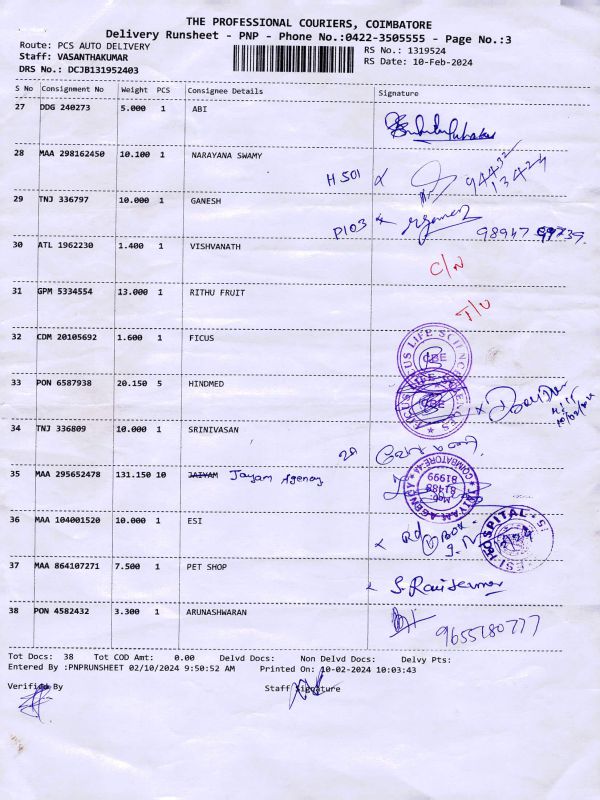 THE PROFESSIONAL COURIERS, COIMBATORE
Delivery Runsheet - PNP - Phone No.:0422-3505555 - Page No.:3
Route: PCS AUTO DELIVERY RS No.: 1319524
Staff: VASANTHAKUMAR RS Date: 10-Feb-2024
DRS No.: DCJB131952403
S No Consignment No Weight PCS Consignee Details Signature
27 DDG 240273 5.000 1 ABI
28 MAA 298162450 10.100 1 NARAYANA SWAMY
H 501 94432
13424
29 TNJ 336797 10.000 1 GANESH
P103 98947 99739
30 ATL 1962230 1.400 1 VISHVANATH
C/N
31 GPM 5334554 13.000 1 RITHU FRUIT
T/U
32 CDM 20105692 1.600 1 FICUS
FICUS LIFE SCIENCES
CBE
33 PON 6587938 20.150 5 HINDMED
34 TNJ 336809 10.000 1 SRINIVASAN
35 MAA 295652478 131.150 10 JAIYAM Jayam Agency
JAIYAM AGENCY COIMBATORE-44
Mob:
81488
81999
36 MAA 104001520 10.000 1 ESI
Rd Box
ESI HOSPITAL
37 MAA 864107271 7.500 1 PET SHOP
S. Ravikumar
38 PON 4582432 3.300 1 ARUNASHWARAN
9655280777
Tot Docs: 38 Tot COD Amt: 0.00 Delvd Docs: Non Delvd Docs: Delvy Pts:
Entered By :PNPRUNSHEET 02/10/2024 9:50:52 AM Printed On: 10-02-2024 10:03:43
Verified By Staff Signature